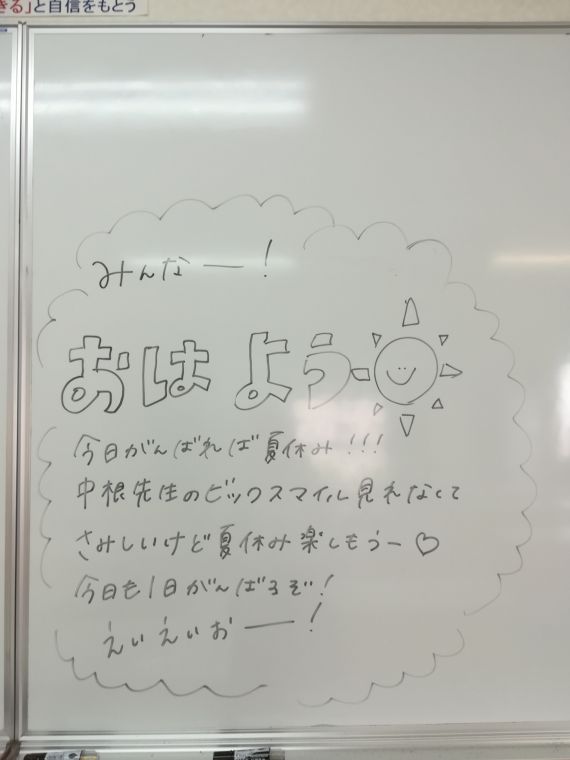 きる」と自信をもとう
みんなー!
おはよう
今日がんばれば夏休み!!!
中根先生のビックスマイル見れなくて
さみしいけど夏休み楽しもうー♡
今日も1日がんばろぞ!
えいえいおー!